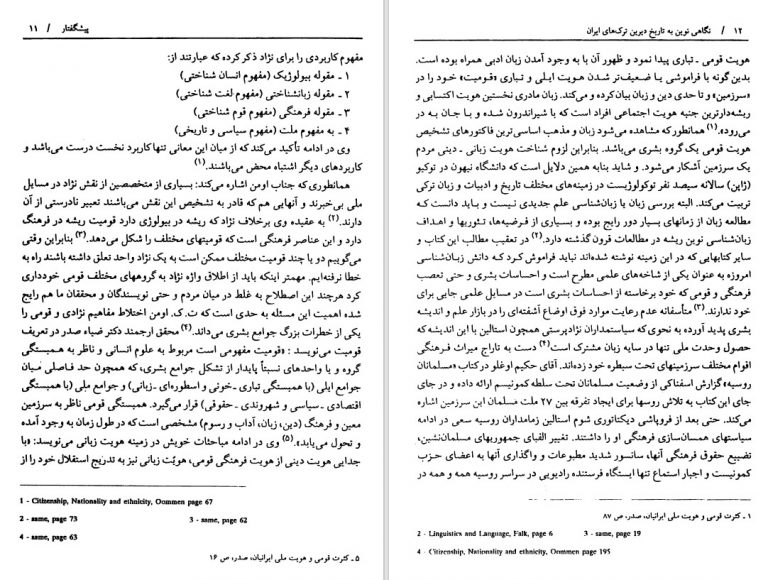 پیشگفتار / ۱۱
مفهوم کاربردی را برای نژاد ذکر کرده که عبارتند از:
۱ ـ مقوله بیولوژیک (مفهوم انسان شناختی)
۲ ـ مقوله زبانشناختی (مفهوم لغت شناختی)
۳ ـ مقوله فرهنگی (مفهوم قوم شناختی)
۴ ـ به مفهوم ملت (مفهوم سیاسی و تاریخی)
وی در ادامه تأکید می‌کند که از میان این معانی تنها کاربرد نخست درست می‌باشد و
کاربردهای دیگر اشتباه محض می‌باشند.(۱)
همانطوری که جناب اومن اشاره می‌کند: بسیاری از متخصصین از نقش نژاد در مسایل
ملی بی‌خبرند و آنهایی هم که قادر به تشخیص این نقش می‌باشند تعبیر نادرستی از آن
دارند.(۲) به عقیده وی برخلاف نژاد که ریشه در بیولوژی دارد قومیت ریشه در فرهنگ
دارد و این عناصر فرهنگی است که قومیتهای مختلف را شکل می‌دهد.(۳) بنابراین وقتی
می‌گوییم دو یا چند قومیت مختلف ممکن است به یک نژاد واحد تعلق داشته باشند راه به
خطا نرفته‌ایم. مهمتر اینکه باید از اطلاق واژه نژاد به گروههای مختلف قومی خودداری
کرد هرچند این اصطلاح به غلط در میان مردم و حتی نویسندگان و محققان ما هم رایج
شده اهمیت این مسئله به حدی است که ت.ک. اومن اختلاط مفاهیم نژادی و قومی را
یکی از خطرات بزرگ جوامع بشری می‌داند.(۴) محقق ارجمند دکتر ضیاء صدر در تعریف
قومیت می‌نویسد : «قومیت مفهومی است مربوط به علوم انسانی و ناظر به همبستگی
گروه و یا واحدهای نسبتاً پایدار از تشکل جوامع بشری، که همچون حد فاصلی میان
جوامع ایلی (با همبستگی تباری ـ خونی و اسطوره‌ای ـ زبانی) و جوامع ملی (با همبستگی
اقتصادی ـ سیاسی و شهروندی ـ حقوقی) قرار می‌گیرد. همبستگی قومی ناظر به سرزمین
معین و فرهنگ (دین، زبان، آداب و رسوم) مشخصی است که در طول زمان به وجود آمده
و تحول می‌یابد».(۵) وی در ادامه مباحثات خویش در زمینه هویت زبانی می‌نویسد: «با
جدایی هویت دینی از هویت فرهنگی قومی، هویّت زبانی نیز به تدریج استقلال خود را از
1 - Citizenship, Nationality and ethnicity, Oommen page 67
2 - same, page 73 3 - same, page 62
4 - same, page 63
۵ ـ کثرت قومی و هویت ملی ایرانیان، صدر، ص ۱۶
۱۲ / نگاهی نوین به تاریخ دیرین ترک‌های ایران
هویت قومی ـ تباری پیدا نمود و ظهور آن با به وجود آمدن زبان ادبی همراه بوده است.
بدین گونه با فراموشی یا ضعیف‌تر شدن هویت ایلی و تباری «قومیت» خود را در
«سرزمین» و تا حدی دین و زبان بیان کرده و می‌کند. زبان مادری نخستین هویت اکتسابی و
ریشه‌دارترین جنبه هویت اجتماعی افراد است که با شیراندرون شده و با جان به در
می‌رود».(۱) همانطور که مشاهده می‌شود زبان و مذهب اساسی‌ترین فاکتورهای تشخیص
هویت قومی یک گروه بشری می‌باشد. بنابراین لزوم شناخت هویت زبانی ـ دینی مردم
یک سرزمین آشکار می‌شود. و شاید بنابه همین دلایل است که دانشگاه نیهون در توکیو
(ژاپن) سالانه سیصد نفر توکولوژیست در زمینه‌های مختلف تاریخ و ادبیات و زبان ترکی
تربیت می‌کند. البته بررسی زبان یا زبان‌شناسی علم جدیدی نیست و باید دانست که
مطالعه زبان از زمانهای بسیار دور رایج بوده و بسیاری از فرضیه‌ها، تئوریها و اهداف
زبان‌شناسی نوین ریشه در مطالعات قرون گذشته دارد.(۲) در تعقیب مطالب این کتاب و
سایر کتابهایی که در این زمینه نوشته شده‌اند نباید فراموش کرد که دانش زبان‌شناسی
امروزه به عنوان یکی از شاخه‌های علمی مطرح است و احساسات بشری و حتی تعصب
فرهنگی و قومی که خود برخاسته از احساسات بشری است در مسایل علمی جایی برای
خود ندارند.(۳) متأسفانه عدم رعایت موارد فوق اوضاع آشفته‌ای را در بازار علم و اندیشه
بشری پدید آورده به نحوی که سیاستمداران نژادپرستی همچون استالین با این اندیشه که
حصول وحدت ملی تنها در سایه زبان مشترک است(۴) دست به تاراج میراث فرهنگی
اقوام مختلف سرزمینهای تحت سیطره خود زده‌اند. آقای حکیم اوغلو در کتاب «مسلمانان
روسیه» گزارش اسفناکی از وضعیت مسلمانان تحت سلطه کمونیسم ارائه داده و در جای
جای این کتاب به تلاش روسها برای ایجاد تفرقه بین ۲۷ ملت مسلمان این سرزمین اشاره
می‌کند. حتی بعد از فروپاشی دیکتاتوری شوم استالین زمامداران روسیه سعی در ادامه
سیاستهای همسان‌سازی فرهنگی او را داشتند. تغییر الفبای جمهوریهای مسلمان‌نشین،
تضییع حقوق فرهنگی آنها، سانسور شدید مطبوعات و واگذاری آنها به اعضای حزب
کمونیست و اجبار استماع تنها ایستگاه فرستنده رادیویی در سراسر روسیه همه و همه در
۱ ـ کثرت قومی و هویت ملی ایرانیان، صدر، ص ۸۷
2 - Linguistics and Language, Falk, page 6 3 - same, page 19
4 - Citizenship, Nationality and ethnicity, Oommen page 195